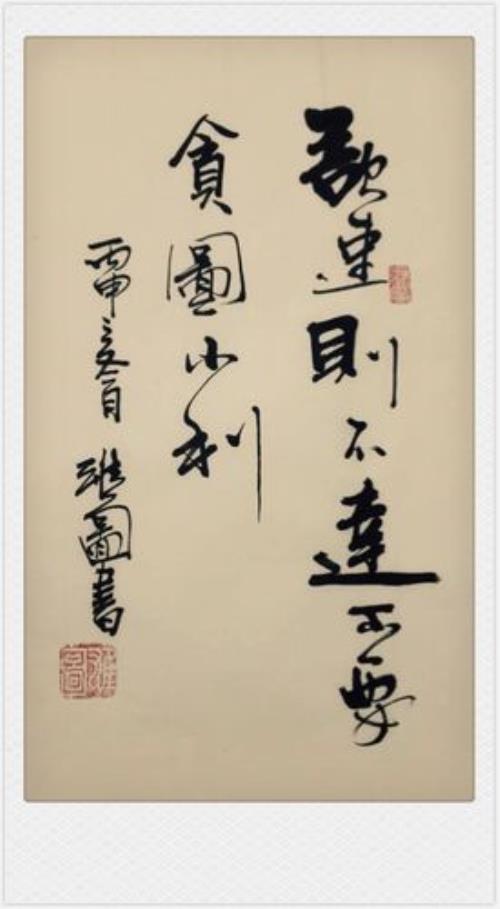 欲速則不達不要
貪圖小利
丙申
圖書